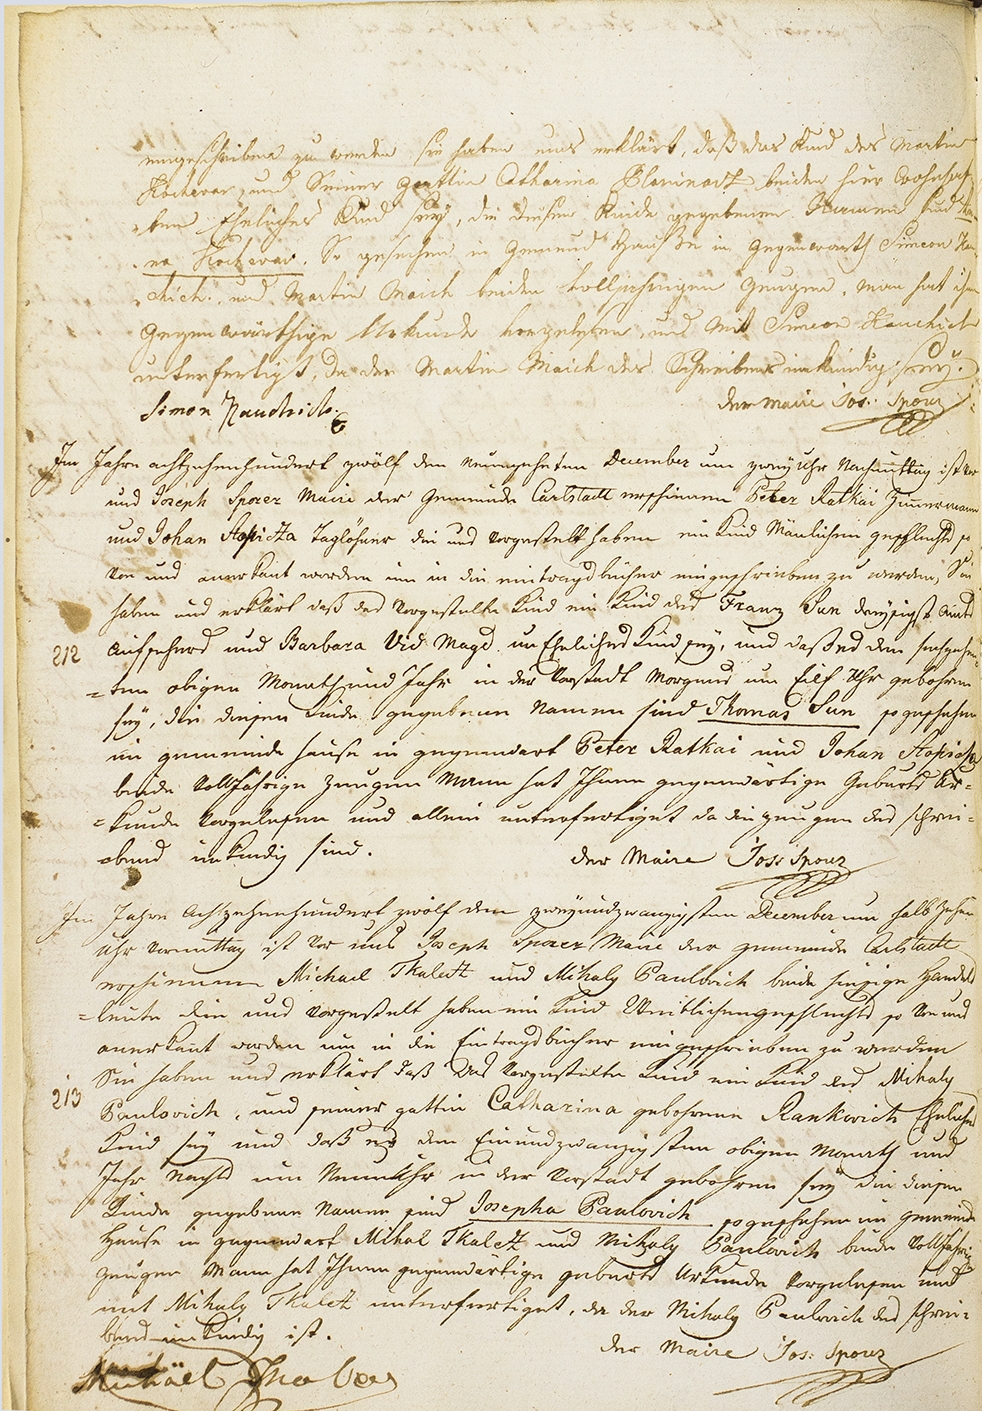 eingeschrieben zu werden sie haben uns erklärt, daß das Kind des Martin
Kocevar und Seiner Gattin Catharina beiden hier wohnhaf-
-ten Eheliches Kind seÿ, die diesem Kinde gegebenen Namen sind
Kocevar. So geschehen in Gemeind Hause in Gegenwarth Simeon Hau-
-chich und Martin Maich beiden volljährigen Zeugen, man hat ihnen
Gegenwärthige Urkunde vorgelesen, und mit Simeon Hauchich
unterfertigt, da der Martin Maich des Schreibens unkündig seÿ.
Simon
der Maire Jos: Sporer
Im Jahre achtzehenhundert zwölf den Neunzehnten December um zweÿ Uhr Nachmittag ist vor
uns Joseph Sporer Maire der Gemeinde Carlstadt erschienen Peter Ratkai Zimmermann
und Johan Stopicza Taglöhner die uns vorgestelt haben ein Kind Mänlichen geschlechts so
von uns anerkant worden um in die eintragsbücher eingeschrieben zu werden, Sie
haben uns erklärt daß das vorgestelte Kind ein Kind des Franz Sun
aufsehers und Barbara Vid Magd. un Eheliches Kind seÿ, und daß es den sechzehn-
212
=ten obigen Monath und Jahr in der Vorstadt Morgens um Eilf Uhr gebohren
seÿ, die diesem Kinde gegebenen Namen sind Thomas Sun so geschehen
im gemeinde Hause in gegenwart Peter Ratkai und Johan Stopicza
beide Volljährige Zeugen Mann hat Ihnen gegenwärtige Geburts Ur=
=kunde vorgelesen und allein unterfertiget da die zeugen des schrei=
=bens unkundig sind.
der Maire Jos: Sporer
Im Jahre Achtzehenhundert zwölf den zweÿundzwanzigsten December um halb Zehen
Uhr Vormittag ist vor uns Joseph Sporer Maire der gemeinde Carlstadt
erschienen Michael Tkaletz und Mihaly Paulovich beide hiesige Handels
=leute die uns vorgestelt haben ein Kind Weiblichengeschlechts so von uns
anerkant worden um in die Eintragsbücher eingeschrieben zu werden
Sie haben uns erklärt daß das vorgestelte Kind ein Kind des Mihaly
213
Paulovich, und seiner gattin Catharina gebohrene Rankovich Eheliches
Kind seÿ und daß es den Einundzwanzigsten obigen Monath und
Jahr Nachts um Neun Uhr in der Vorstadt gebohren seÿ die diesem
Kinde gegebene Namen sind Josepha Paulovich so geschehen im gemeinde
Hause in gegenwart Mihal Tkaletz und Mihaly Paulovich beide Volljährig
Zeugen Mann hat Ihnen gegenwärtige geburts Urkunde vorgelesen und
mit Mihaly Tkaletz unterfertiget, da der Mihaly Paulovich des schrei=
bens unkundig ist.
der Maire Jos: Sporer
Michäel